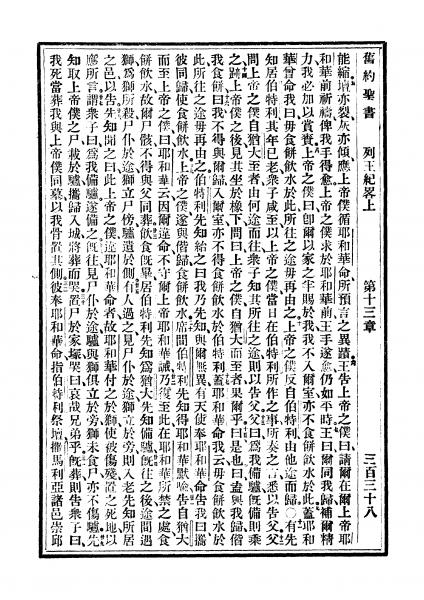 舊約聖書 列王紀畧上 第十三章 三百三十八
能縮壇亦裂灰亦傾應上帝僕循耶和華命所預言之異蹟王告上帝之僕曰請爾在爾上帝耶
和華前祈禱俾我手得愈上帝之僕求於耶和華前王手遂愈仍如平時王曰爾同我歸補爾精
力我必加以賞賚上帝之僕曰卽爾以家之半賜於我我不入爾室亦不食餅飲水於此蓋耶和
華曾命我曰毋食餅飲水於此所往之途毋再由之上帝之僕反自伯特利由他途而歸○有先
知居伯特利其年已老衆子咸至以上帝之僕當日在伯特利所作之事所奏之言悉以告父父
問上帝之僕自猶大至者由何途而往衆子知其所往之途則以告父父曰爲我備驢旣備則乘
之踪上帝僕之後見其坐於橡下問曰上帝之僕自猶大而至者果爾乎曰是也曰盍與我歸偕
我食餅曰我不得與爾歸入爾室亦不得食餅飲水於伯特利蓋耶和華命我云毋食餅飲水於
此所往之途毋再由之伯特利先知紿之曰我乃先知與爾無異有天使奉耶和華命告我曰攜
彼同歸使食餅飲水上帝之僕遂與偕歸食餅飲水席間伯特利先知得耶和華默示告自猶大
而至上帝之僕曰耶和華云因爾違命不守爾上帝耶和華誡乃復至此在耶和華所禁之處食
餅飲水故爾尸骸不得與父同葬飲食旣畢居伯特利先知爲猶大先知備驢旣往之後途間遇
獅爲獅所殺尸仆於途獅立尸傍驢遺於側有人過之見尸仆於途獅立於旁則入老先知所居
之邑以告先知聞之曰此上帝之僕違耶和華命者故耶和華付之於獅使被傷殘置之死地以
應所言謂衆子曰爲我備驢遂備之旣往見尸仆於途驢與獅俱立於旁獅未食尸亦不傷驢先
知取上帝僕之尸載於驢攜歸入城將葬而哭置尸於家塚哭曰哀哉兄弟乎旣葬則告衆子曰
我死當葬我與上帝僕同墓以我骨置其側彼奉耶和華命指伯特利祭壇撒馬利亞諸邑崇邱